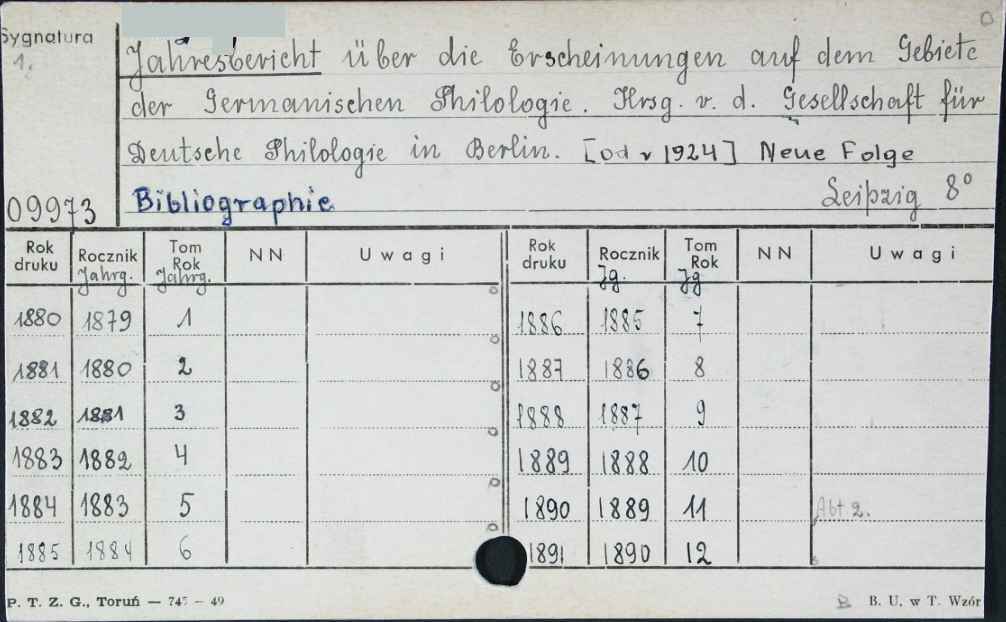 Sygnatura
1.
Jahresbericht über die Erscheinungen auf dem Gebiete
der Germanischen Philologie. Hrsg. v. d. Gesellschaft für
Deutsche Philologie in Berlin. [od v 1924] Neue Folge
Bibliographie
Leipzig 8°
09973
Rok druku Rocznik Jahrg. Tom Rok Jahrg. NN Uwagi Rok druku Rocznik Jg. Tom Rok Jg NN Uwagi
1880 1879 1 1886 1885 7
1881 1880 2 1887 1886 8
1882 1881 3 1888 1887 9
1883 1882 4 1889 1888 10
1884 1883 5 1890 1889 11 Abt 2.
1885 1884 6 1891 1890 12
P. T. Z. G., Toruń — 745 — 49 B. U. w T. Wzór